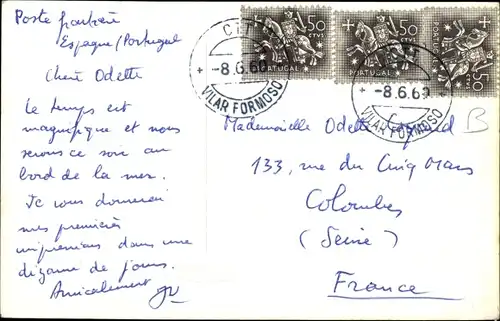 Poste frontière
Espagne/Portugal
Chère Odette
Le temps est
magnifique et nous
serons ce soir au
bord de la mer.
Je vous donnerai
mes premières
impressions dans une
dizaine de jours.
Amicalement
50
CTVS.
PORTUGAL
50
CTVS.
PORTUGAL
50
CTVS.
- 8.6.60
VILAR FORMOSO
- 8.6.60
VILAR FORMOSO
B
Mademoiselle Odette
133, rue du Cinq Mars
Colombes
(Seine)
France